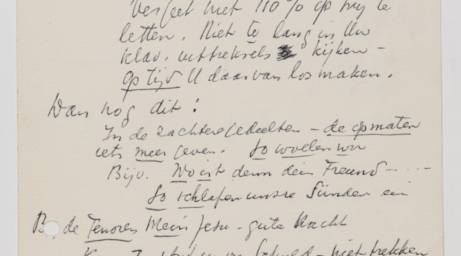 Vergeet niet 110% op mij te
letten. Niet te lang in Uw
klav. uittreksels kijken –
op tijd U daarvan los maken.
Dan nog dit!
In de zachtere gedeelten – de opmaten
iets meer geven. So wollen wir
Bijv. Wo ist denn dein Freund – . . .
So schlafen unsre Sünden ein
Bij de Tenoren Mein Jesu – gute Nacht
niet trekken